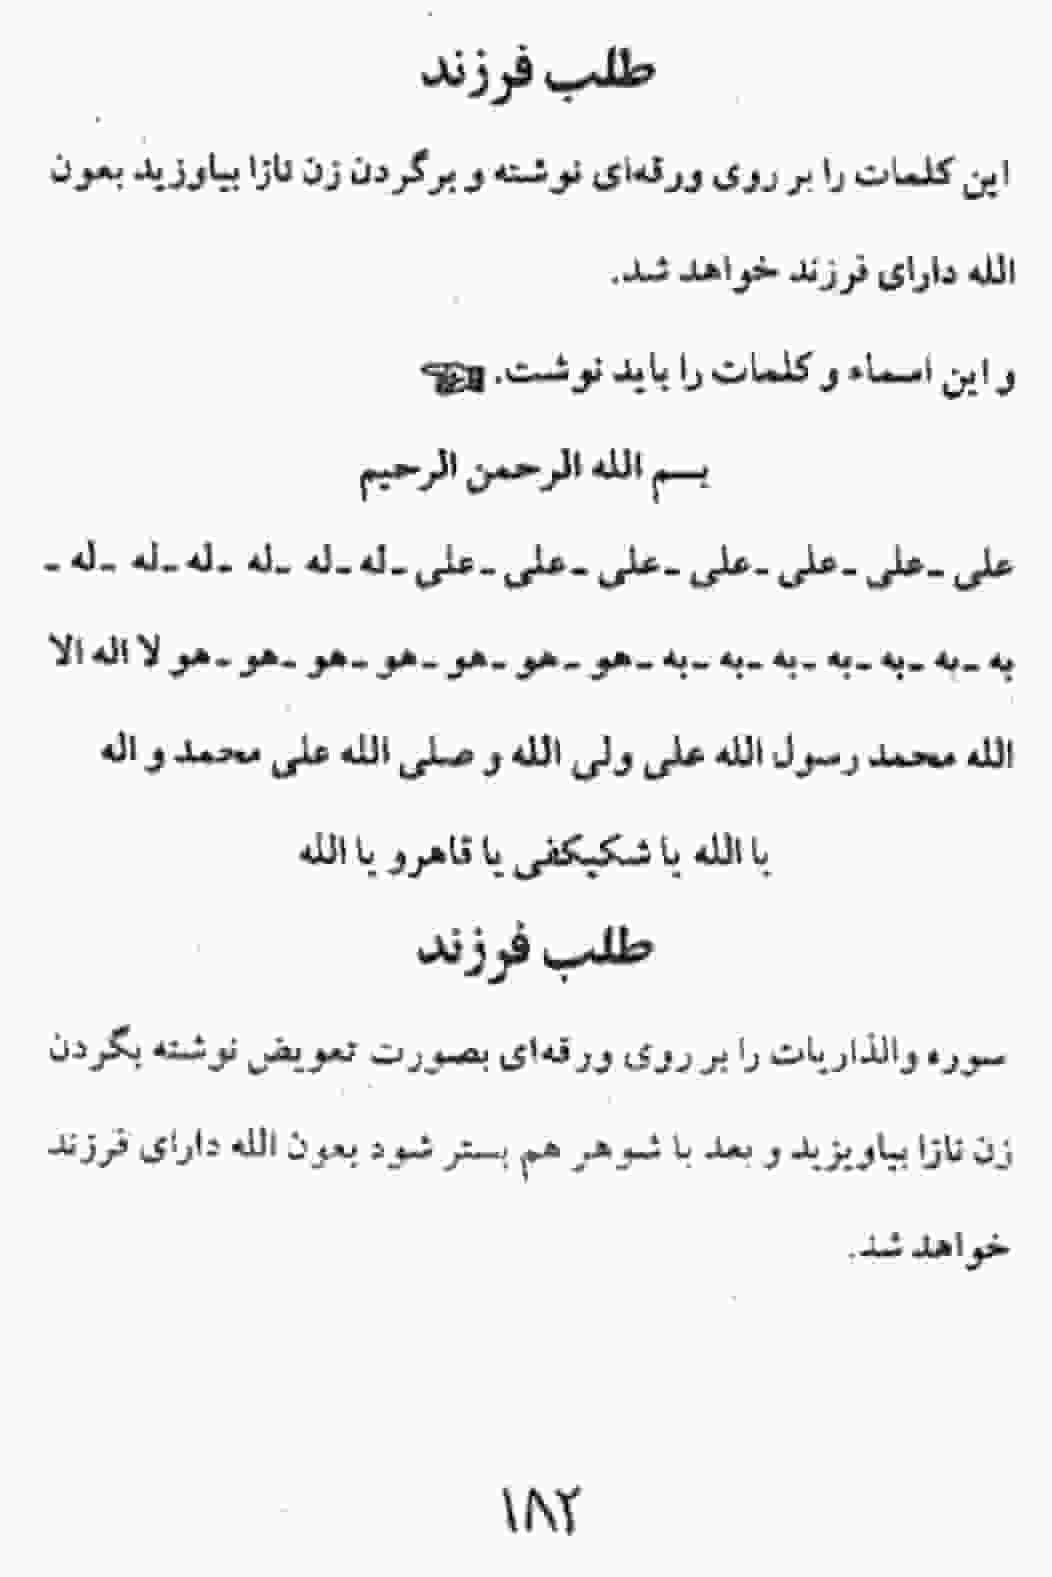 طلب فرزند
این کلمات را بر روی ورقه‌ای نوشته و برگردن زن نازا بیاوزید بعون
الله دارای فرزند خواهد شد.
و این اسماء و کلمات را باید نوشت.
بسم الله الرحمن الرحیم
علی ـ علی ـ علی ـ علی ـ علی ـ علی ـ علی ـ له ـ له ـ له ـ له ـ له ـ له ـ
به ـ به ـ به ـ به ـ به ـ به ـ به ـ هو ـ هو ـ هو ـ هو ـ هو ـ هو ـ هو لا اله الا
الله محمد رسول الله علی ولی الله و صلی الله علی محمد و اله
یا الله یا شکیکفی یا قاهرو یا الله
طلب فرزند
سوره والذاریات را بر روی ورقه‌ای بصورت تعویض نوشته بگردن
زن نازا بیاویزید و بعد با شوهر هم بستر شود بعون الله دارای فرزند
خواهد شد.
۱۸۲